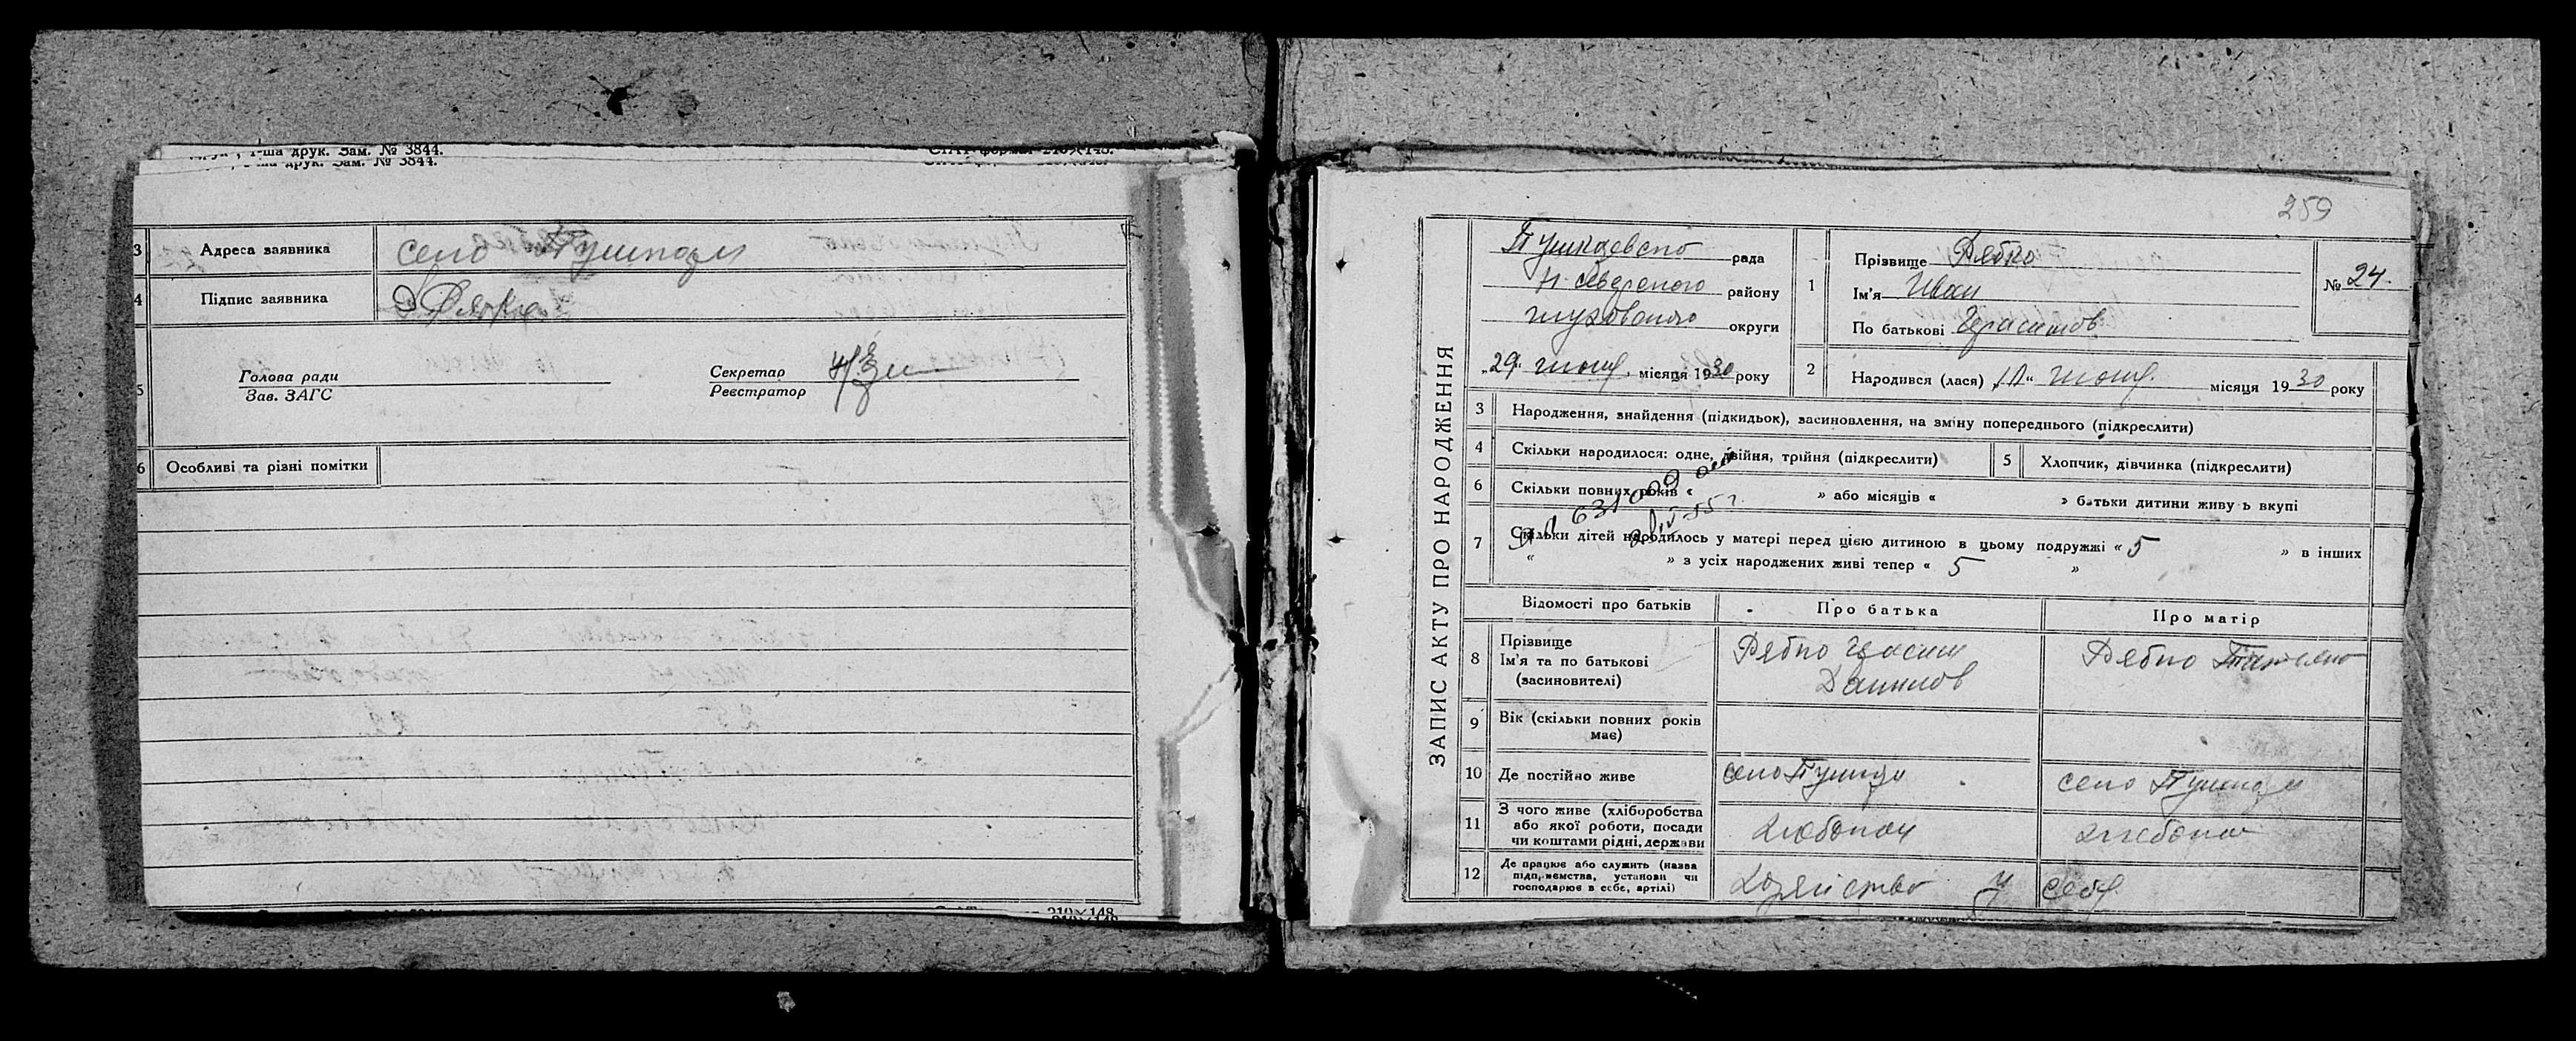 1-ша друк. Зам. № 3844.
ша друк. Зам. № 3844.
3 Адреса заявника село Пушкари
4 Підпис заявника
5 Голова ради
Зав. ЗАГС
Секретар
Реєстратор
6 Особливі та різні помітки
210×148.
210×148
259
ЗАПИС АКТУ ПРО НАРОДЖЕННЯ
Пушкаевско рада
Н. Северского району
Глуховского округи
„29“ июня місяця 1930 року
1 Прізвище Рябко
Ім'я Иван
По батькові Герасимов
№ 24.
2 Народився (лася) июня місяця 1930 року
3 Народження, знайдення (підкидьок), засиновлення, на зміну попереднього (підкреслити)
4 Скільки народилося: одне, двійня, трійня (підкреслити)
5 Хлопчик, дівчинка (підкреслити)
6 Скільки повних років « » або місяців « » батьки дитини живу ь вкупі
631009
55 г.
7 Скільки дітей народилось у матері перед цією дитиною в цьому подружжі « 5 » в інших
« » з усіх народжених живі тепер « 5 »
Відомості про батьків Про батька Про матір
8 Прізвище
Ім'я та по батькові
(засиновителі)
Рябко Герасим
Данилов
Рябко Татьяна
9 Вік (скільки повних років
має)
10 Де постійно живе село Пушкари село Пушкари
11 З чого живе (хліборобства
або якої роботи, посади
чи коштами рідні, держави
хлебопаш хлебопаш
12 Де працює або служить (назва
підприємства, установи чи
господарює в себе, артілі)
Хозяйство у себя